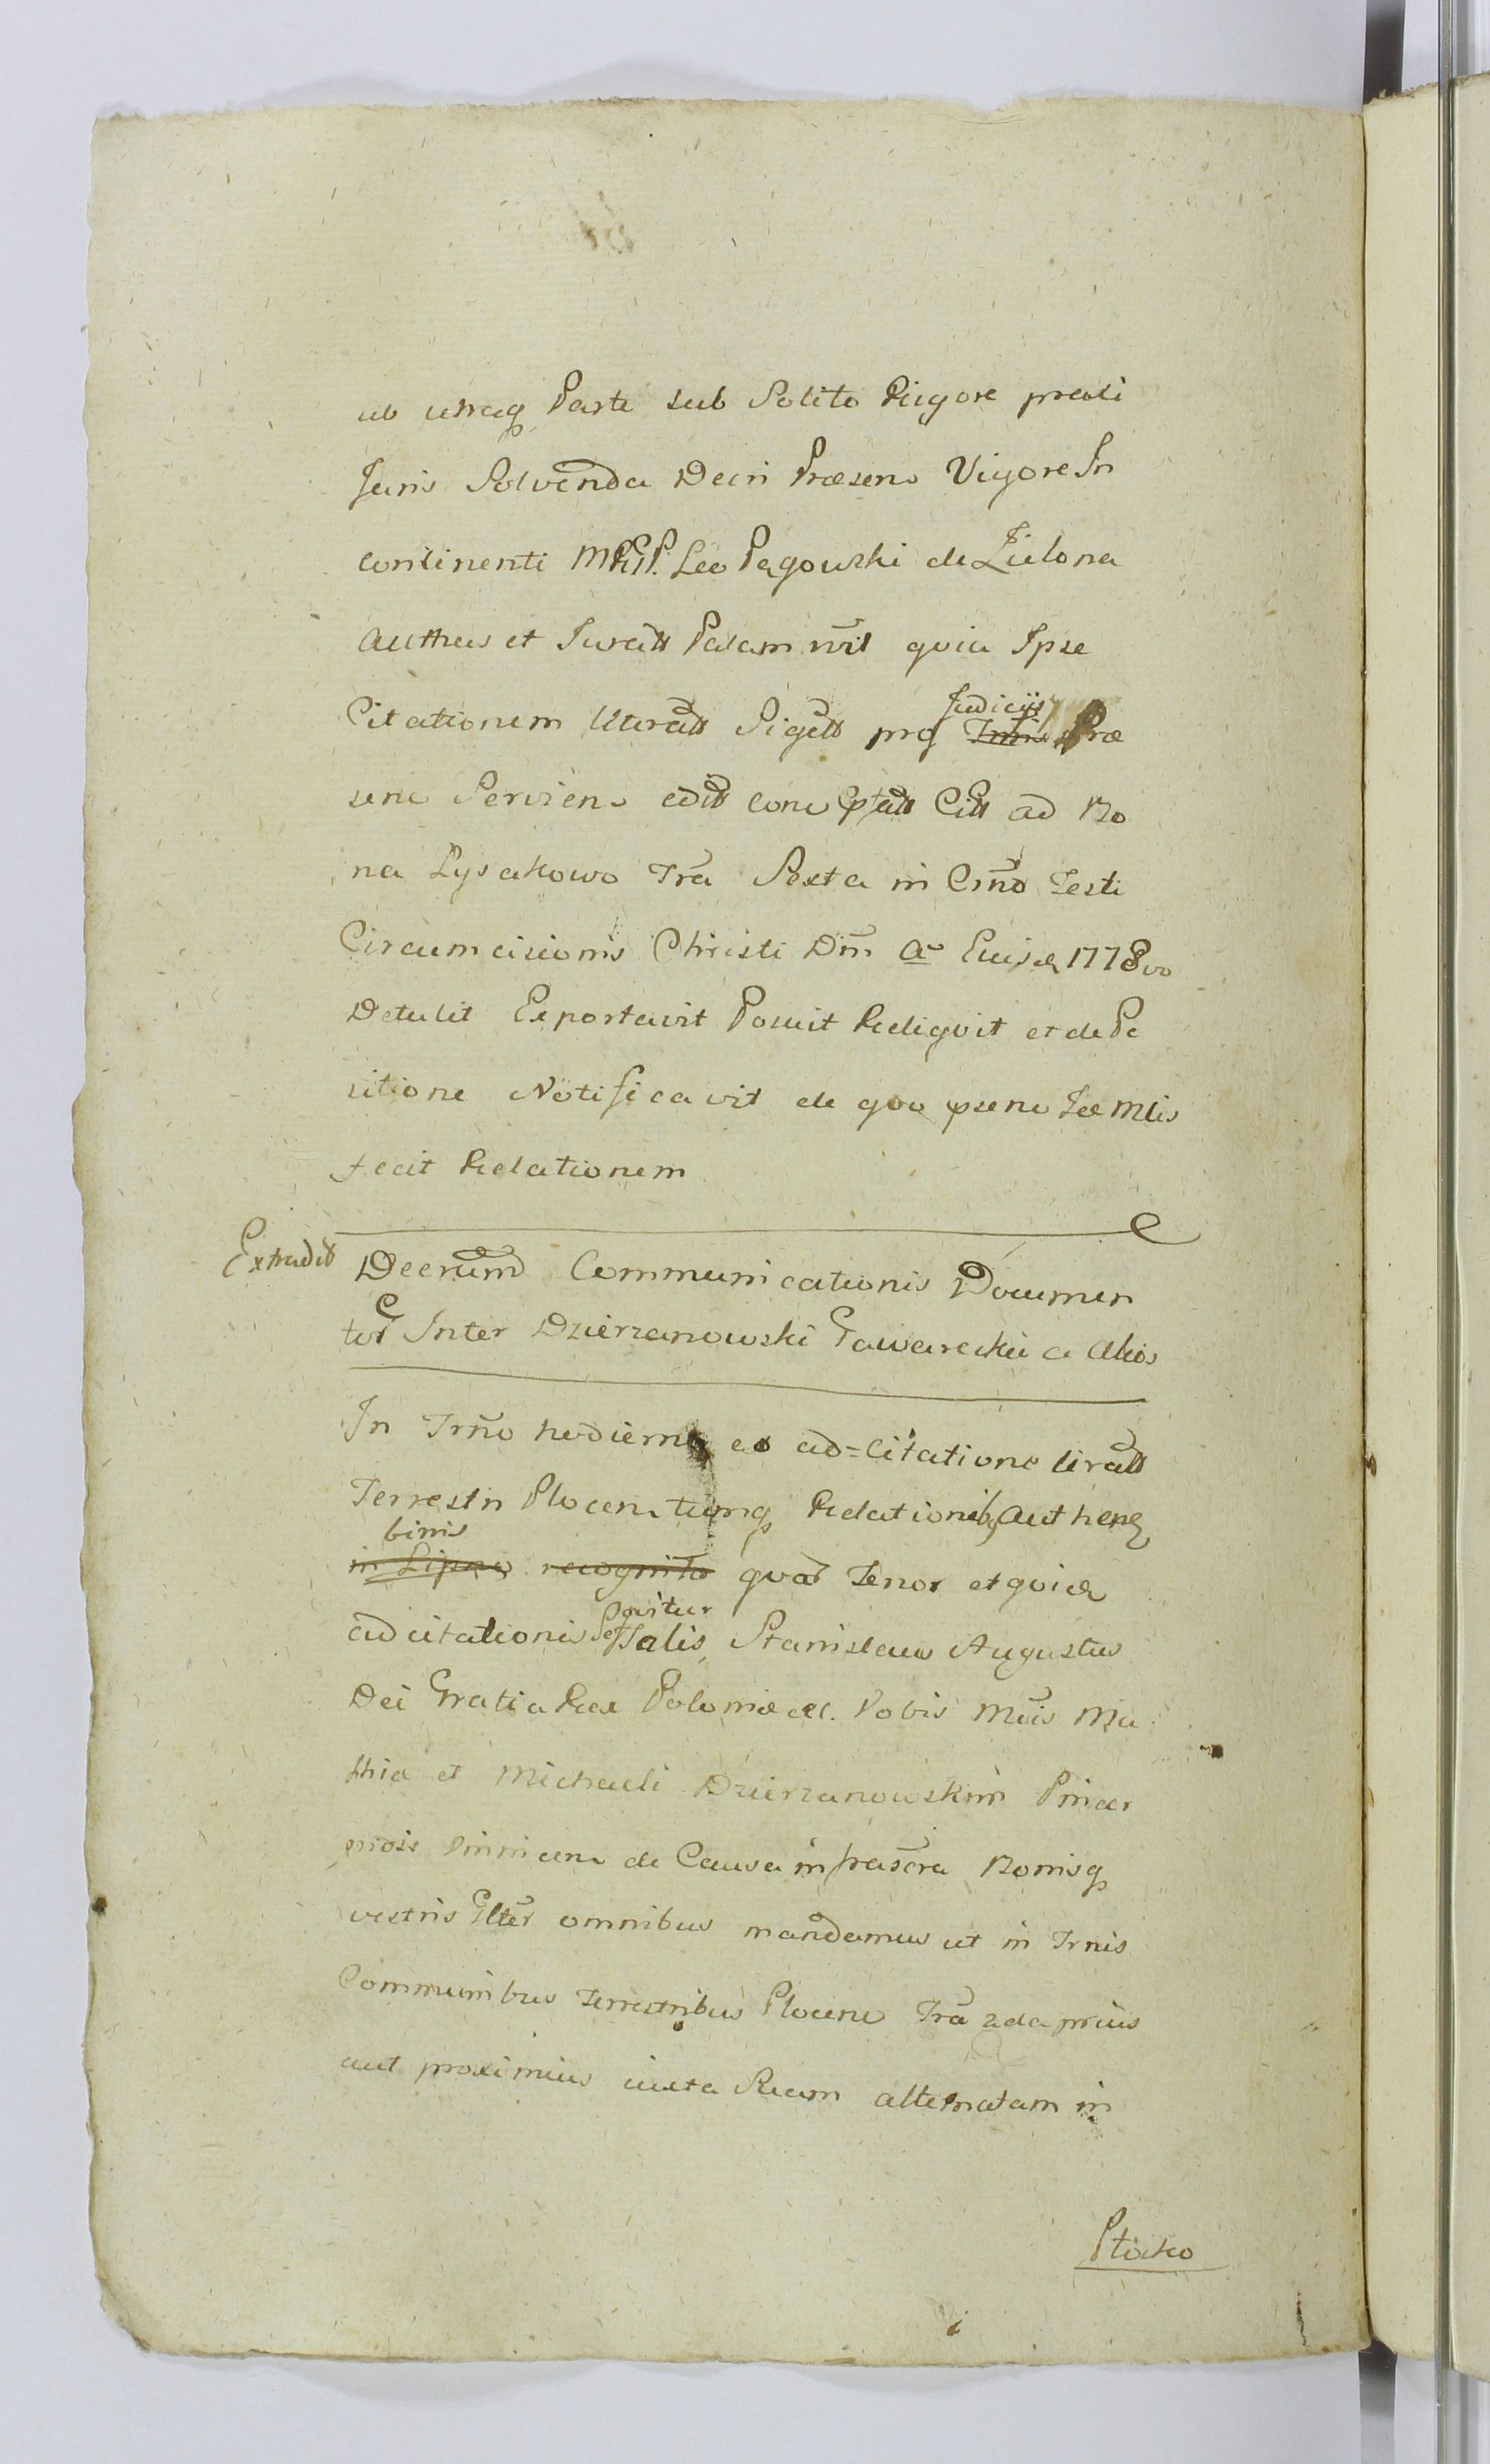 ab utraq Parte sub Solito Rigore preali
Juris Solvenda Decri Præsens Vigore In
continenti Leo Pągowski de Zielona
Authus et Juratt Palam rnit quia Ipse
Citationem literatt Sigett pro Judicijs Præ
sens Serviens editt conceptatt Citt ad Bo
na Łysakowo Tra Sexta in Crno Festi
Circumcisionis Christi Dni Ao Eiusd 1778vo
Detulit Exportavit Posuit Reliqvit et de Po
sitione Notificavit de qvo psens Jæ Mlis
fecit Relationem
Extradit Decretum Communicationis Documen
tor Inter Dzierzanowski Gawarecki a Alios
In Trno hodierno ex ad=citatione liratt
Terrestri Plocen tumq Relationibq Authenq
binis
in Lipno recognito qvar Tenor et qvidē
adcitationis Seqvitur talis, Stanislaus Augustus
Dei Gratia Rex Poloniæ etc. Vobis Mcis Ma
thia et Michaeli Dzierzanowskim Pincer
nidis Vinnicens de Causa infrascra Bonisq
vestris Glter omnibus mandamus ut in Trnis
Communibus Terrestribus Plocens Tra 2da prius
aut proximius iuxta Suam alternatam in
Płocko